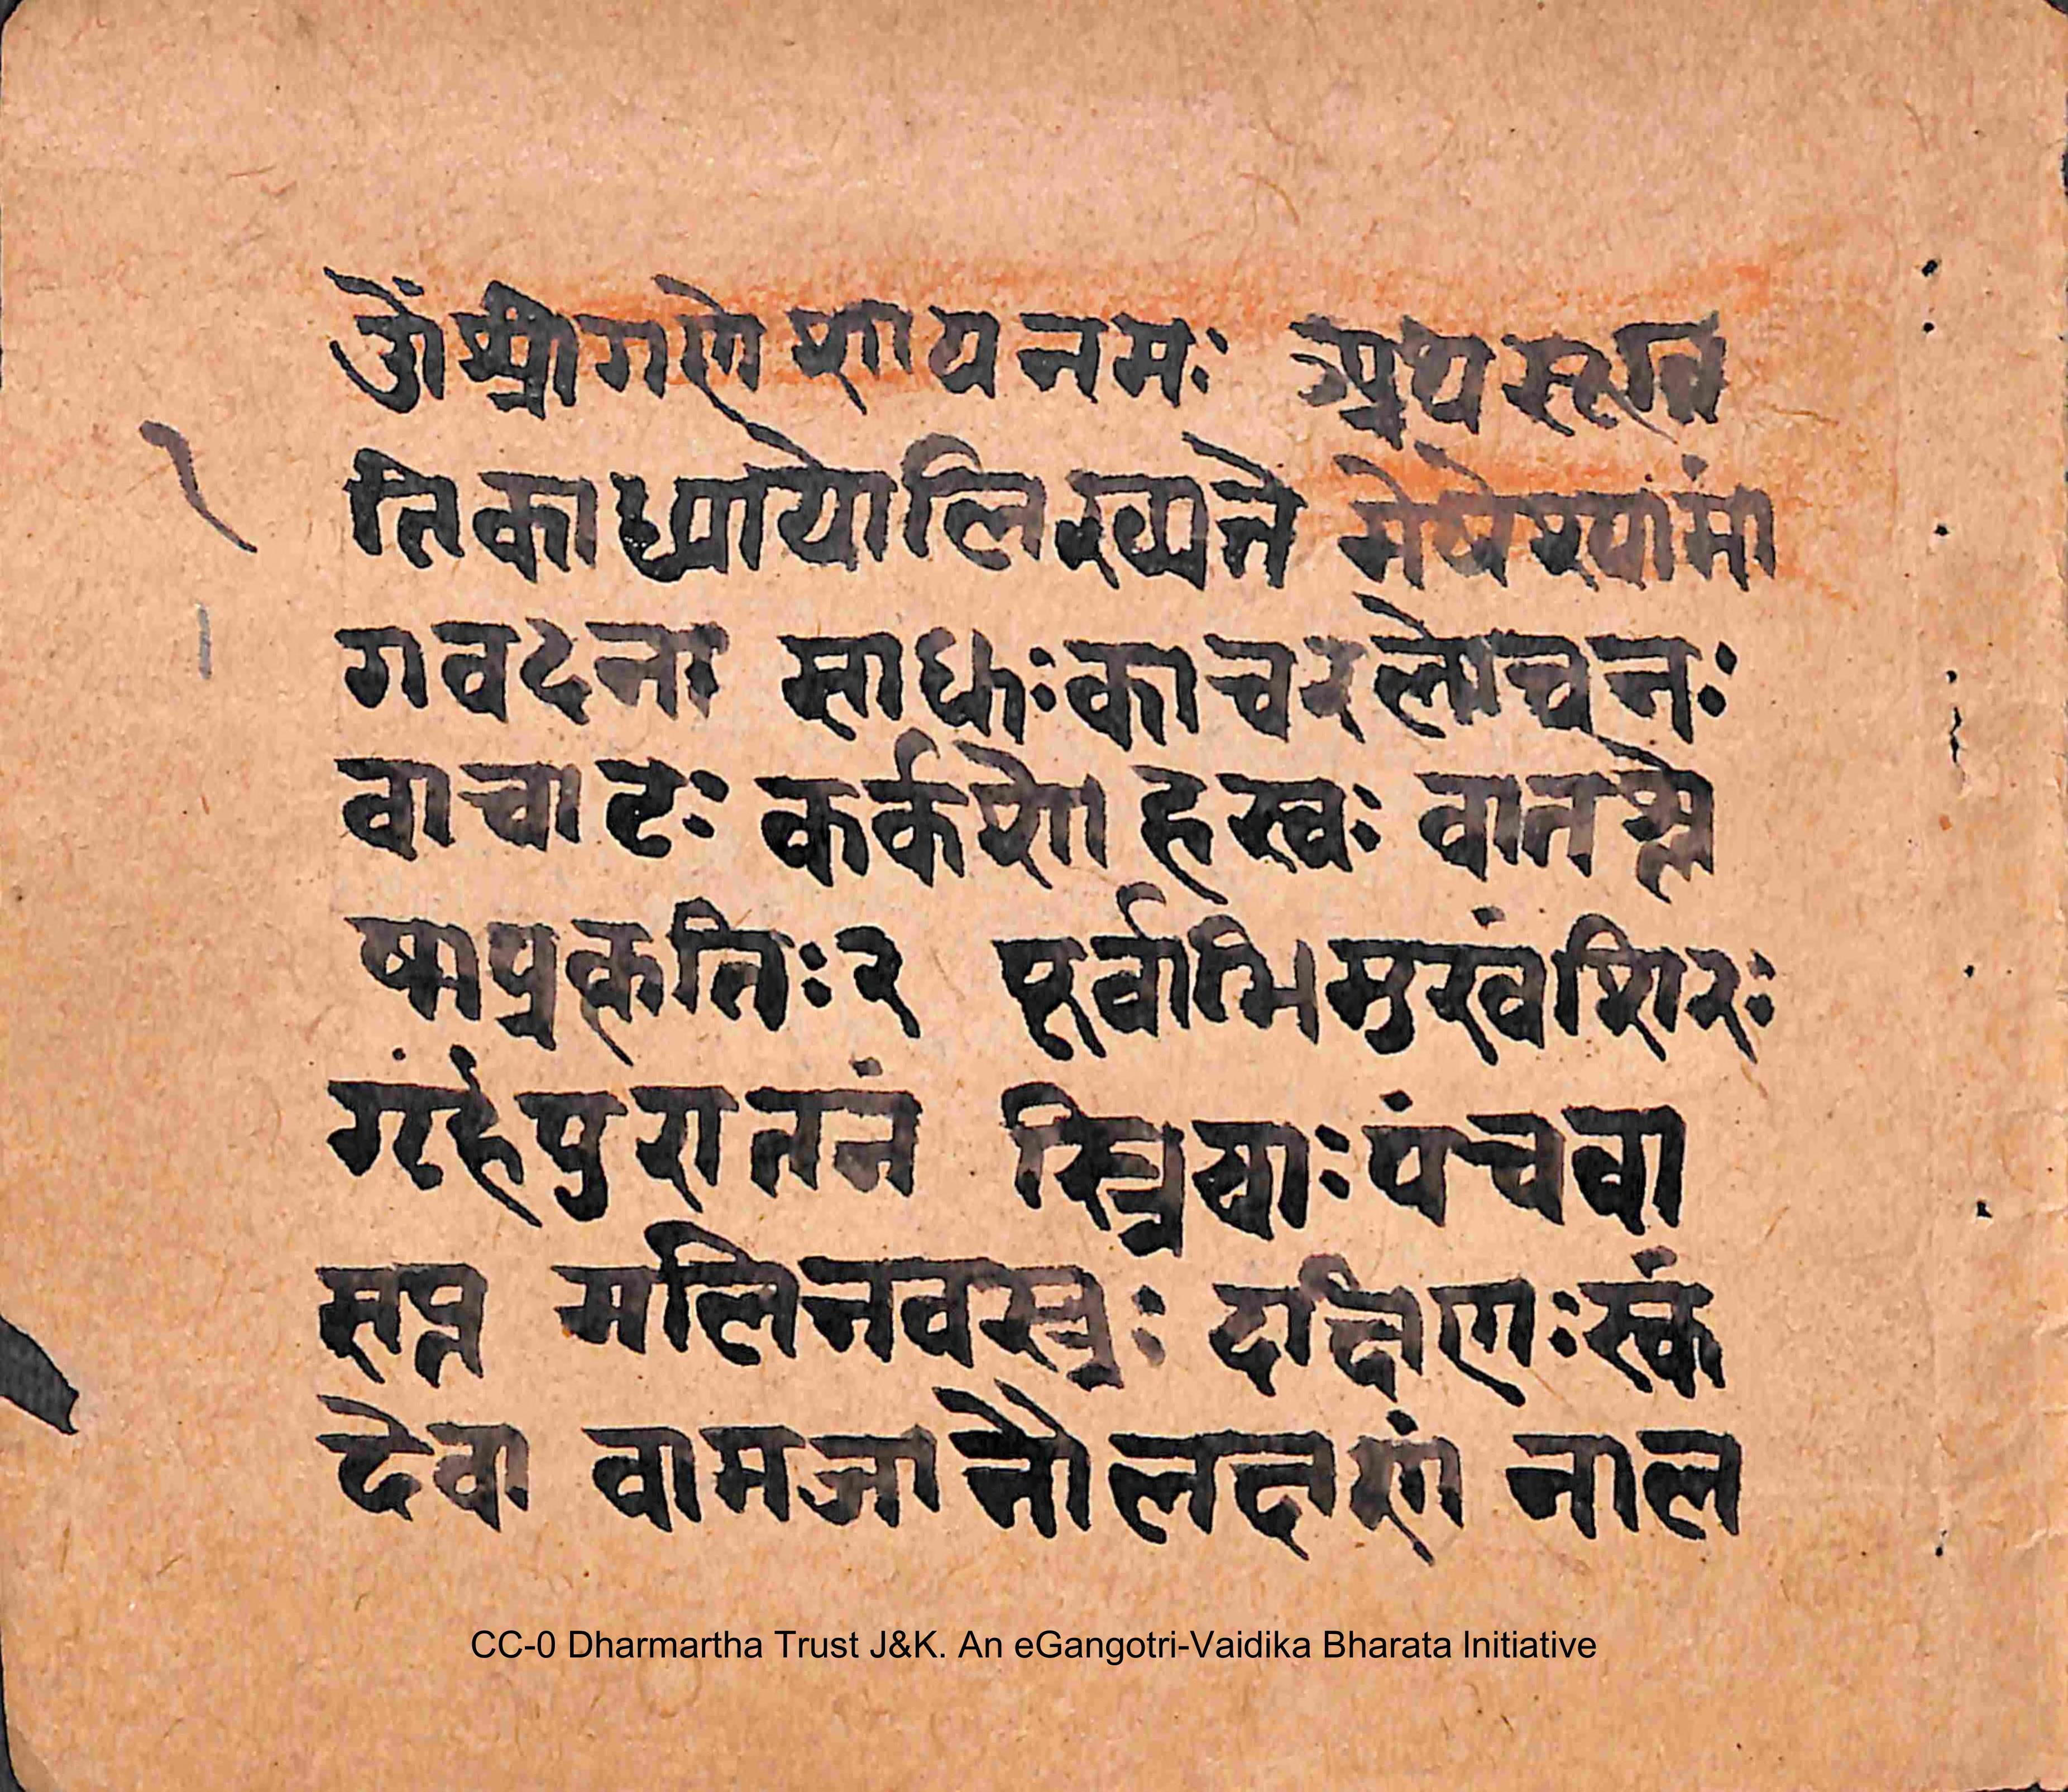 ॐ श्रीगणेशायनमः अथ सूति
तिकाध्यायोलिख्यते मेषेरयांमा
गवदना साधकःकाचरलोचनः
वाचाटः कर्कशो हस्वः वातश्ले
ष्माप्रकृतिः२ पूर्वाभिमुखंशिरः
गृंहंपुरातनं स्त्रियाःपंचवा
सप्त मलिनवस्त्रः दक्षिणःस्कं
देवा वामजानौलक्षणं नाल
CC-0 Dharmartha Trust J&K. An eGangotri-Vaidika Bharata Initiative